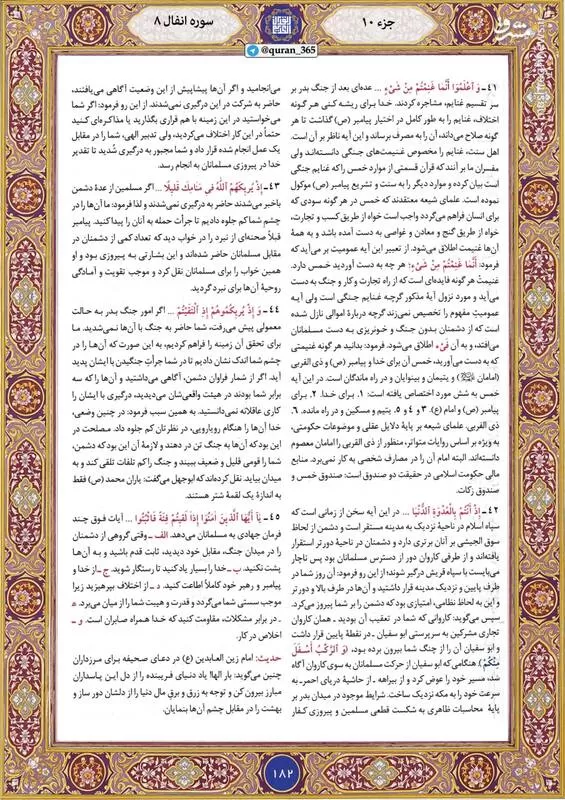 جزء ۱۰
سوره انفال ۸
مشرق
@quran_365
۴۱- وَ اعْلَمُوا أَنَّمَا غَنِمْتُمْ مِنْ شَيْءٍ ... عده‌ای بعد از جنگ بدر بر
سر تقسیم غنایم، مشاجره کردند. خدا برای ریشه کنی هر گونه
اختلاف، غنایم را به طور کامل در اختیار پیامبر (ص) گذاشت تا هر
گونه صلاح می‌داند، آن را به مصرف برساند و این آیه ناظر بر آن است.
اهل سنت، غنایم را مخصوص غنیمت‌های جنگی دانسته‌اند ولی
مفسران ما بر آنند که قرآن قسمتی از موارد خمس را که غنایم جنگی
است بیان کرده و موارد دیگر را به سنت و تشریع پیامبر (ص) موکول
نموده است. علمای شیعه معتقدند که خمس در هر گونه سودی که
برای انسان فراهم می‌گردد واجب است خواه از طریق کسب و تجارت،
خواه از طریق گنج و معادن و غواصی به دست آمده باشد و به همهٔ
آن‌ها غنیمت اطلاق می‌شود. از تعبیر این آیه عمومیت بر می‌آید که
فرمود: أَنَّمَا غَنِمْتُمْ مِنْ شَيْءٍ؛ هر چه به دست آوردید خمس دارد.
غنیمتْ هر گونه فایده‌ای است که از راه تجارت و کار و جنگ به دست
می‌آید و مورد نزول آیهٔ مذکور گرچه غنایم جنگی است ولی آیه
عمومیتِ مفهوم را تخصیص نمی‌زند گرچه دربارهٔ اموالی نازل شده
است که از دشمنان بدون جنگ و خونریزی به دست مسلمانان
می‌افتد، و به آن فَیْء اطلاق می‌شود. فرمود: بدانید هر گونه غنیمتی
که به دست می‌آورید، خمس آن برای خدا و پیامبر (ص) و ذی القربی
(امامان) و یتیمان و بینوایان و در راه ماندگان است. در این آیه
خمس به شش مورد اختصاص یافته است: ۱. برای خدا ۲. برای
پیامبر (ص) و امام (ع). ۳ و ۴ و ۵. یتیم و مسکین و در راه مانده. ۶.
ذی القربی. علمای شیعه بر پایهٔ دلایل عقلی و موضوعات حکومتی،
به ویژه بر اساس روایات متواتر، منظور از ذی القربی را امامان معصوم
دانسته‌اند. البته امام آن را در مصارف شخصی به کار نمی‌برد. منابع
مالی حکومت اسلامی در حقیقت دو صندوق است: صندوق خمس و
صندوق زکات.
۴۲- إِذْ أَنْتُمْ بِالْعُدْوَةِ الدُّنْيَا ... در این آیه سخن از زمانی است که
سپاه اسلام در ناحیهٔ نزدیک به مدینه مستقر است و دشمن از لحاظ
سوق الجیشی بر آنان برتری دارد و دشمنان در ناحیهٔ دورتر استقرار
یافته‌اند و از طرفی کاروان دور از دسترس مسلمانان بود پس ناچار
می‌بایست با سپاه قریش درگیر شوند؛ از این رو فرمود: آن روز شما در
طرف پایین و نزدیک مدینه قرار داشتید و آن‌ها در طرف بالا و دورتر
و این به لحاظ نظامی، امتیازی بود که دشمن را بر شما پیروز می‌کرد.
سپس می‌گوید: کاروانی که شما در تعقیب آن بودید ـ همان کاروان
تجاری مشرکین به سرپرستی ابو سفیان ـ در نقطهٔ پایین قرار داشت
و ابو سفیان آن را از جنگ شما بیرون برده بود، (وَ الرَّكْبُ أَسْفَلَ
مِنْكُمْ). هنگامی که ابو سفیان از حرکت مسلمانان به سوی کاروان آگاه
شد، مسیر خود را عوض کرد و از بیراهه ـ از حاشیهٔ دریای احمر ـ به
سرعت خود را به مکه نزدیک ساخت. شرایط موجود در میدان بدر بر
پایهٔ محاسبات ظاهری به شکست قطعی مسلمین و پیروزی کفار
می‌انجامید و اگر آن‌ها پیشاپیش از این وضعیت آگاهی می‌یافتند،
حاضر به شرکت در این درگیری نمی‌شدند. از این رو فرمود: اگر شما
می‌خواستید در این زمینه با هم قراری بگذارید یا مذاکره‌ای کنید
حتماً در این کار اختلاف می‌کردید، ولی تدبیر الهی، شما را در مقابل
یک عمل انجام شده قرار داد و شما مجبور به درگیری شدید تا تقدیر
خدا در پیروزی مسلمانان به انجام رسد.
۴۳- إِذْ يُرِيكَهُمُ اللَّهُ فِي مَنَامِكَ قَلِيلًا ... اگر مسلمین از عدهٔ دشمن
باخبر می‌شدند حاضر به درگیری نمی‌شدند و لذا فرمود: ما آن‌ها را در
چشم شما کم جلوه دادیم تا جرأت حمله به آنان را پیدا کنید. پیامبر
قبلاً صحنه‌ای از نبرد را در خواب دید که تعداد کمی از دشمنان در
مقابل مسلمانان حاضر شده‌اند و این بشارتی به پیروزی بود و او
همین خواب را برای مسلمانان نقل کرد و موجب تقویت و آمادگی
روحیهٔ آن‌ها برای نبرد گردید.
۴۴- وَ إِذْ يُرِيكُمُوهُمْ إِذِ الْتَقَيْتُمْ ... اگر امور جنگ بدر به حالت
معمولی پیش می‌رفت، شما حاضر به جنگ با آن‌ها نمی‌شدید. ما
برای تحقق آن زمینه را فراهم کردیم، به این صورت که آن‌ها را در
چشم شما اندک نشان دادیم تا در شما جرأتِ جنگیدن با ایشان پدید
آید. اگر از شمار فراوان دشمن، آگاهی می‌داشتید و آن‌ها را که سه
برابر شما بودند در هیئت واقعی‌شان می‌دیدید، درگیری با ایشان را
کاری عاقلانه نمی‌دانستید. به همین سبب فرمود: در چنین وضعی،
خدا آن‌ها را هنگام رویارویی، در نظرتان کم جلوه داد. مصلحت در
این بود که آن‌ها به جنگ تن در دهند و لازمهٔ آن این بود که دشمن،
شما را قومی قلیل و ضعیف ببیند و جنگ را کم تلفات تلقی کند و به
میدان بیاید. نقل کرده‌اند که ابوجهل می‌گفت: یاران محمد (ص) فقط
به اندازهٔ یک لقمهٔ شتر هستند.
۴۵- يَا أَيُّهَا الَّذِينَ آمَنُوا إِذَا لَقِيتُمْ فِئَةً فَاثْبُتُوا ... آیات فوق چند
فرمان جهادی به مسلمانان می‌دهد. الف ـ وقتی گروهی از دشمنان
را در میدان جنگ، مقابل خود دیدید، ثابت قدم باشید و به آن‌ها
پشت نکنید. ب ـ خدا را بسیار یاد کنید تا رستگار شوید. ج ـ از خدا و
پیامبر و رهبر خود کاملاً اطاعت کنید. د ـ از اختلاف بپرهیزید زیرا
موجب سستی شما می‌گردد و قدرت و هیبت شما را از میان می‌برد. ه
ـ در برابر مشکلات، مقاومت کنید که خدا همراه صابران است. و ـ
اخلاص در کار.
حدیث: امام زین العابدین (ع) در دعای صحیفه برای مرزداران
چنین می‌گوید: بار الها! یاد دنیای فریبنده را از دل این پاسداران
مبارز بیرون کن و توجه به زرق و برقِ مال دنیا را از دلشان دور ساز و
بهشت را در مقابل چشم آن‌ها بنمایان.
۱۸۲